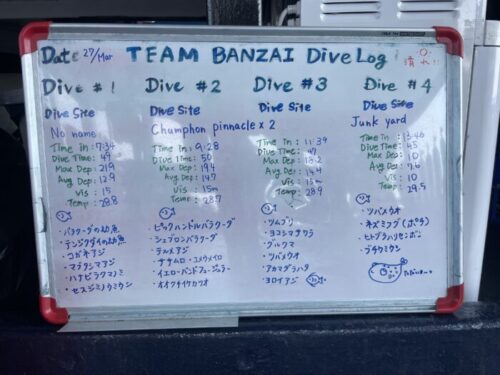 Date 27/Mar TEAM BANZAI Dive Log 晴れ
Dive #1
Dive Site
No name
Time In: 7:34
Dive Time: 49
Max Dep: 21.9
Avg Dep: 12.9
Vis: 15
Temp: 28.8
・バラクーダの幼魚
・テンジクダイの幼魚
・コガネアジ
・マブタシマアジ
・ハナビラクマノミ
・セスジミノウミウシ
Dive #2
Dive Site
Chumphon pinnacle x 2
Time In: 9:28
Dive Time: 50
Max Dep: 19.4
Avg Dep: 14.7
Vis: 15m
Temp: 28.7
・ビックハンドルバラクーダ
・シェブロンバラクーダ
・テルメアジ
・ササムロ・ユメウメイロ
・イエローバンドフュージュラー
・オオクチイケカツオ
Dive #3
Dive Site
Time In: 11:39
Dive Time: 47
Max Dep: 18.2
Avg Dep: 14.4
Vis: 15m
Temp: 28.9
・ツムブリ
・ヨコシマサワラ
・グルクマ
・ツバメウオ
・アカマダラハタ
・ヨロイアジ
Dive #4
Dive Site
Junk yard
Time In: 13:46
Dive Time: 45
Max Dep: 10
Avg Dep: 7.6
Vis: 10
Temp: 29.5
・ツバメウオ
・ネズミフグ(ポチ)
・ヒトヅラハリセンボン
・ブチウミウシ